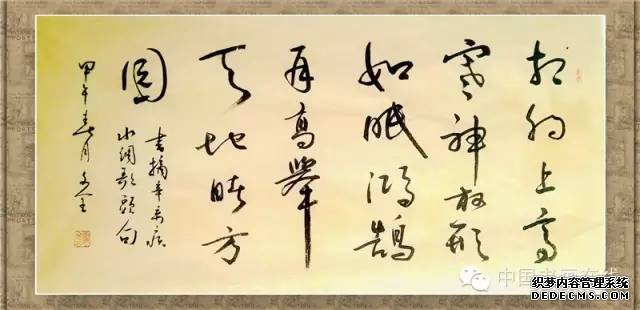 相约上高
寒神放形
如眠鸿鹄
再高举
天地睹方
圆
书摘辛弃疾
水调歌头句
甲午春月
中国书画在线
织梦内容管理系统
DEDECMS.COM